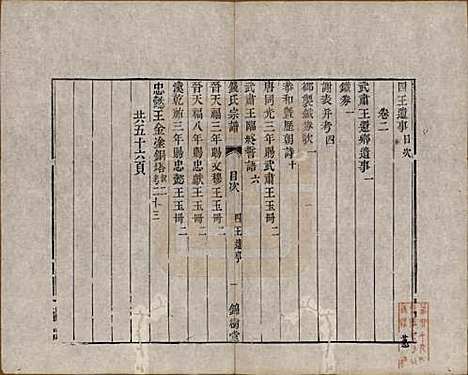 四王遺事目次
卷二
武肅王還鄉遺事 一
鐵券 一
謝表并考 四
御製鐵券歌 一
恭和  歷朝詩 十
唐同光三年賜武肅王玉冊 二
武肅王臨終誓語 六
錢氏宗譜 目次 四王遺事 一 錦樹堂
晉天福三年賜文穆王玉冊 二
晉天福八年賜忠獻王玉冊 二
漢乾祐三年賜忠懿王玉冊 二
忠懿王金塗銅塔 記二 考二十三
共五十六頁